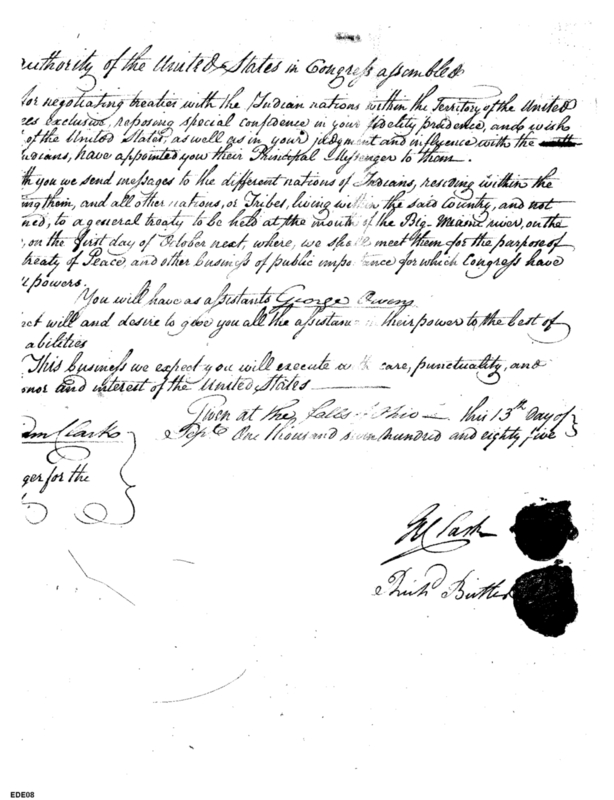 uthority of the United States in Congress assembled
for negotiating treaties with the Indian nations within the Territory of the United
es exclusive, reposing special confidence in your fidelity prudence, and wish
of the United States, as well as in your judgment and influence with the
ndians, have appointed you their Principal Messenger to them.
th you we send messages to the different nations of Indians, resciding within the
ing them, and all other nations, or Tribes, living within the said Country, and not
ned, to a general treaty to be held at the mouth of the Big-Miami river, on the
, on the first day of October next, where, we shall meet them for the purpose of
treaty of Peace, and other business of public importance for which Congress have
powers.
You will have as assistants George Owens
will and desire to give you all the assistance in their power to the best of
abilities
This business we expect you will execute with care, punctuality, and
onor and interest of the United States
Given at the falls of Ohio this 13th Day of
Septr One thousand seven hundred and eighty five
am Clark
ger for the
G Clark
Richd Butler
EDE08